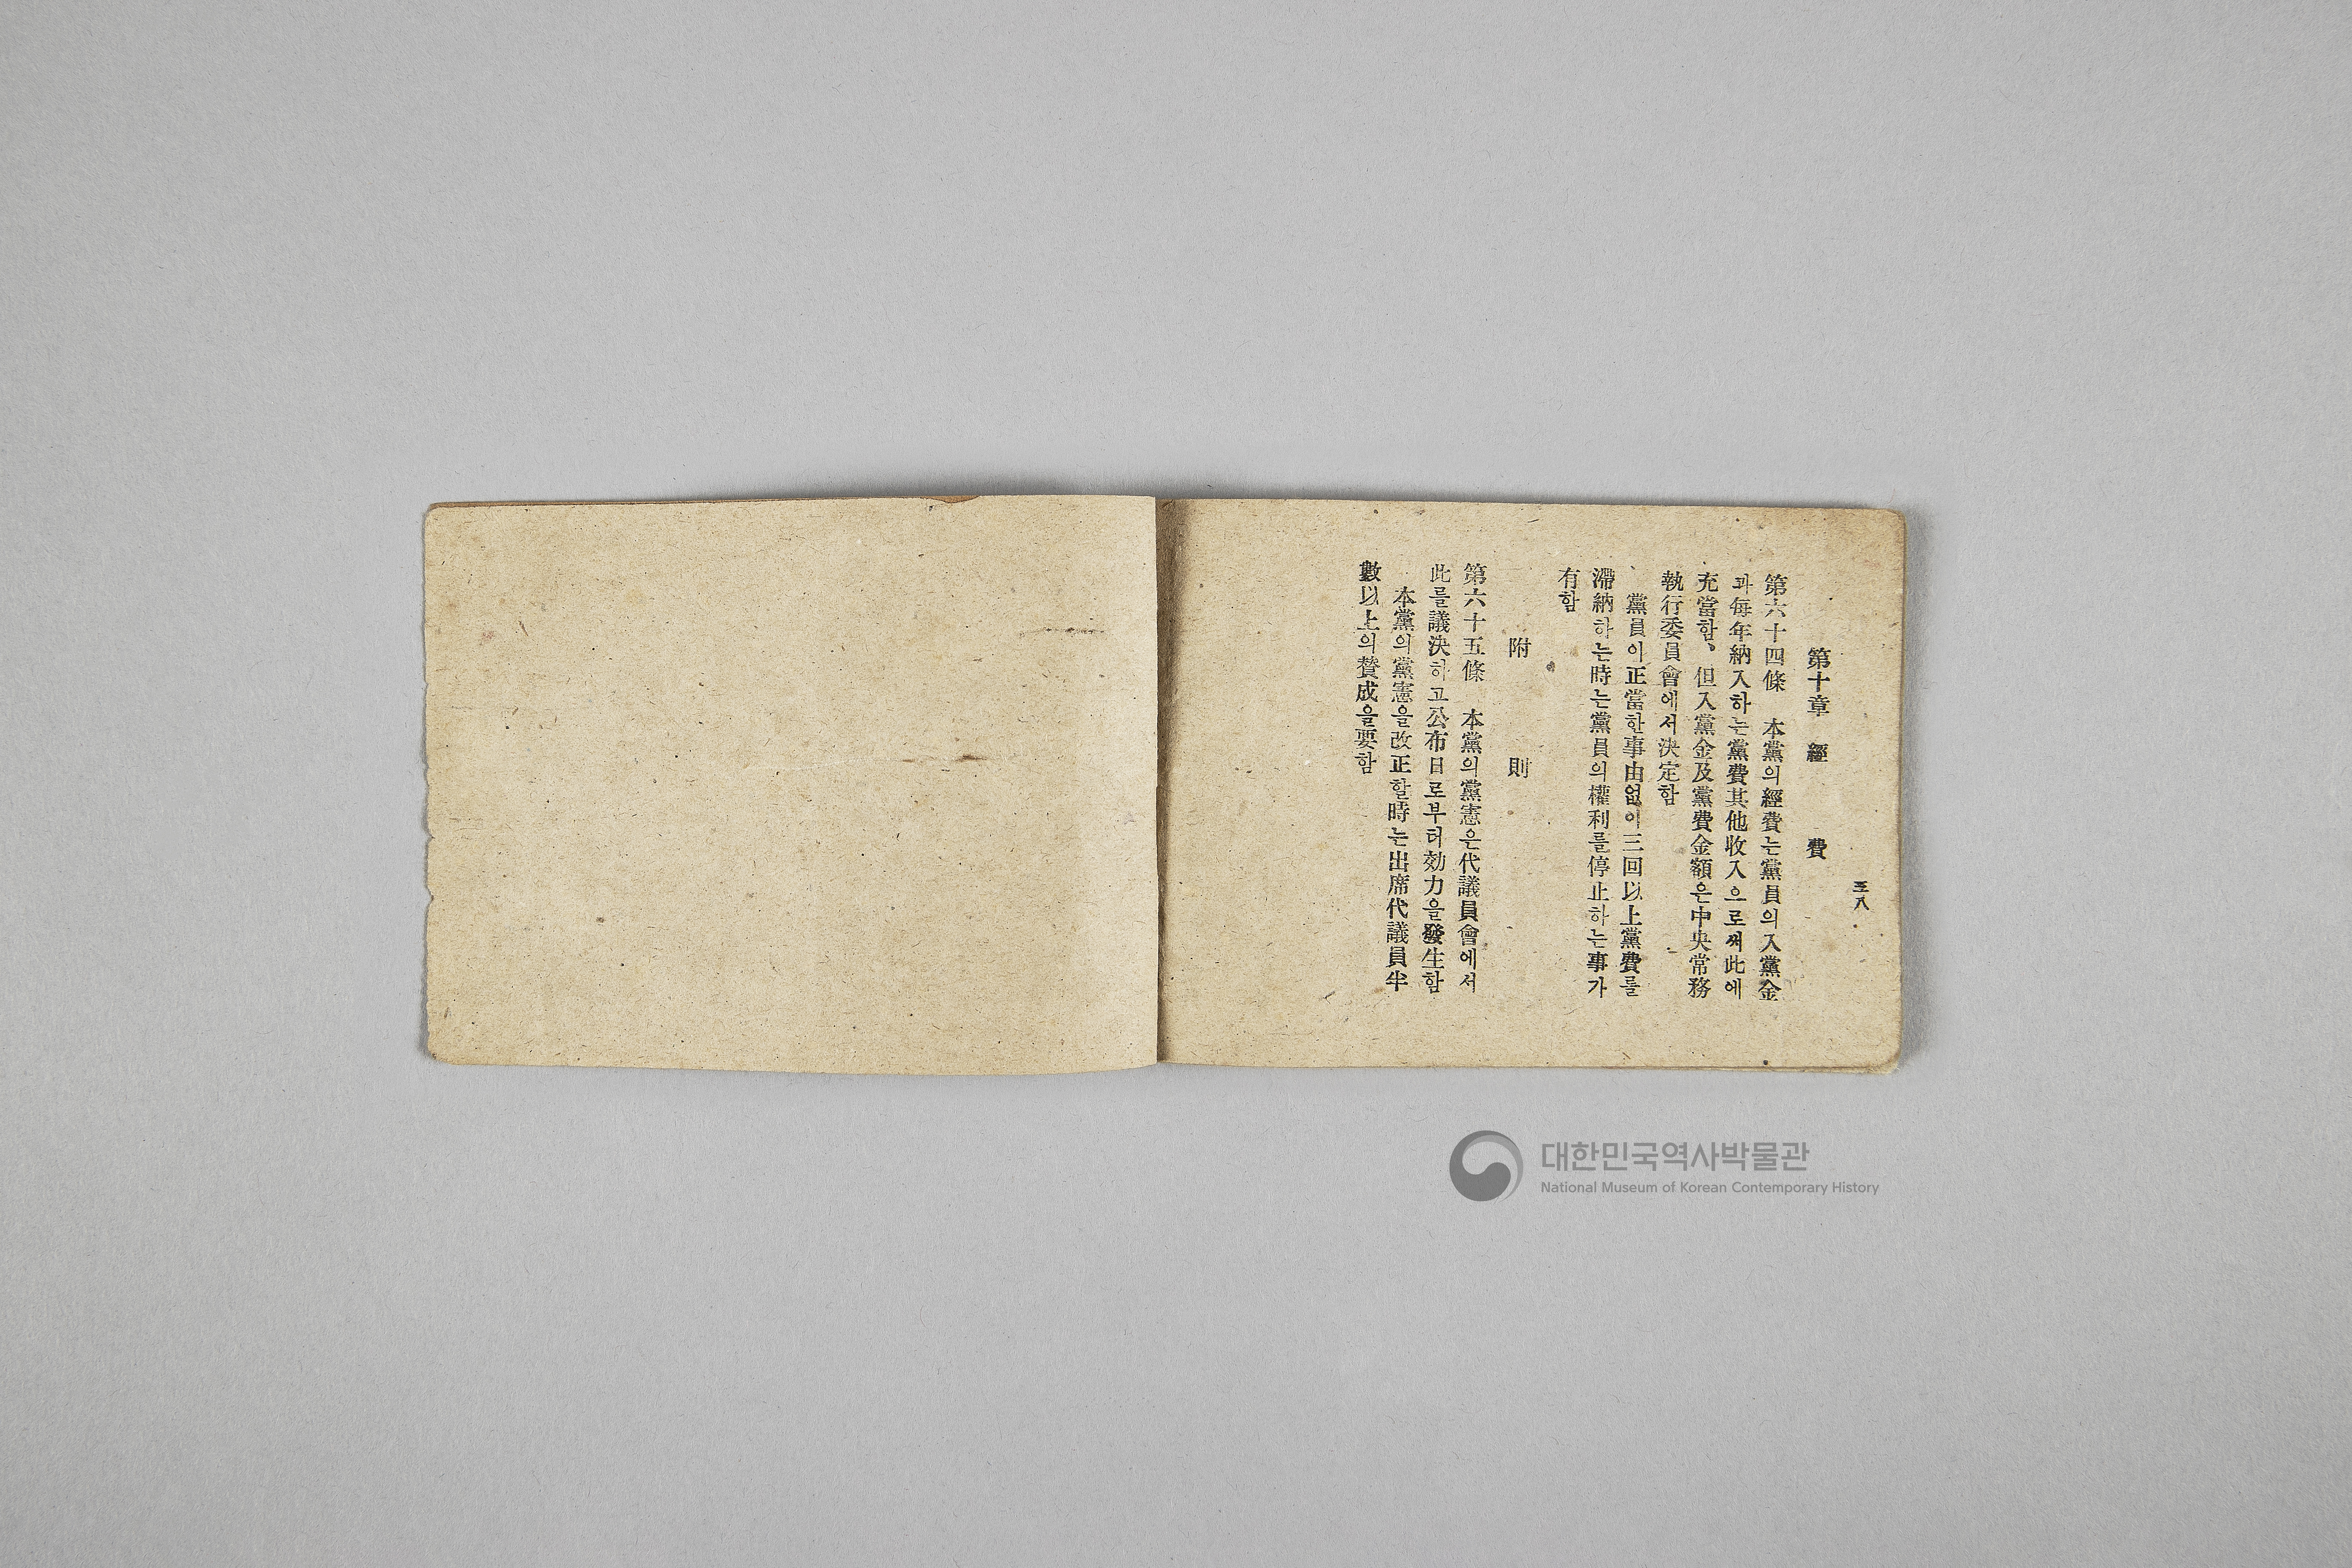 三八
第十章　經　費
第六十四條　本黨의經費는黨員의入黨金
과每年納入하는黨費其他收入으로써此에
充當함、但入黨金及黨費金額은中央常務
執行委員會에서決定함
黨員이正當한事由없이三回以上黨費를
滯納하는時는黨員의權利를停止하는事가
有함
附　則
第六十五條　本黨의黨憲은代議員會에서
此를議決하고公布日로부터効力을發生함
本黨의黨憲을改正할時는出席代議員半
數以上의贊成을要함
대한민국역사박물관
National Museum of Korean Contemporary History